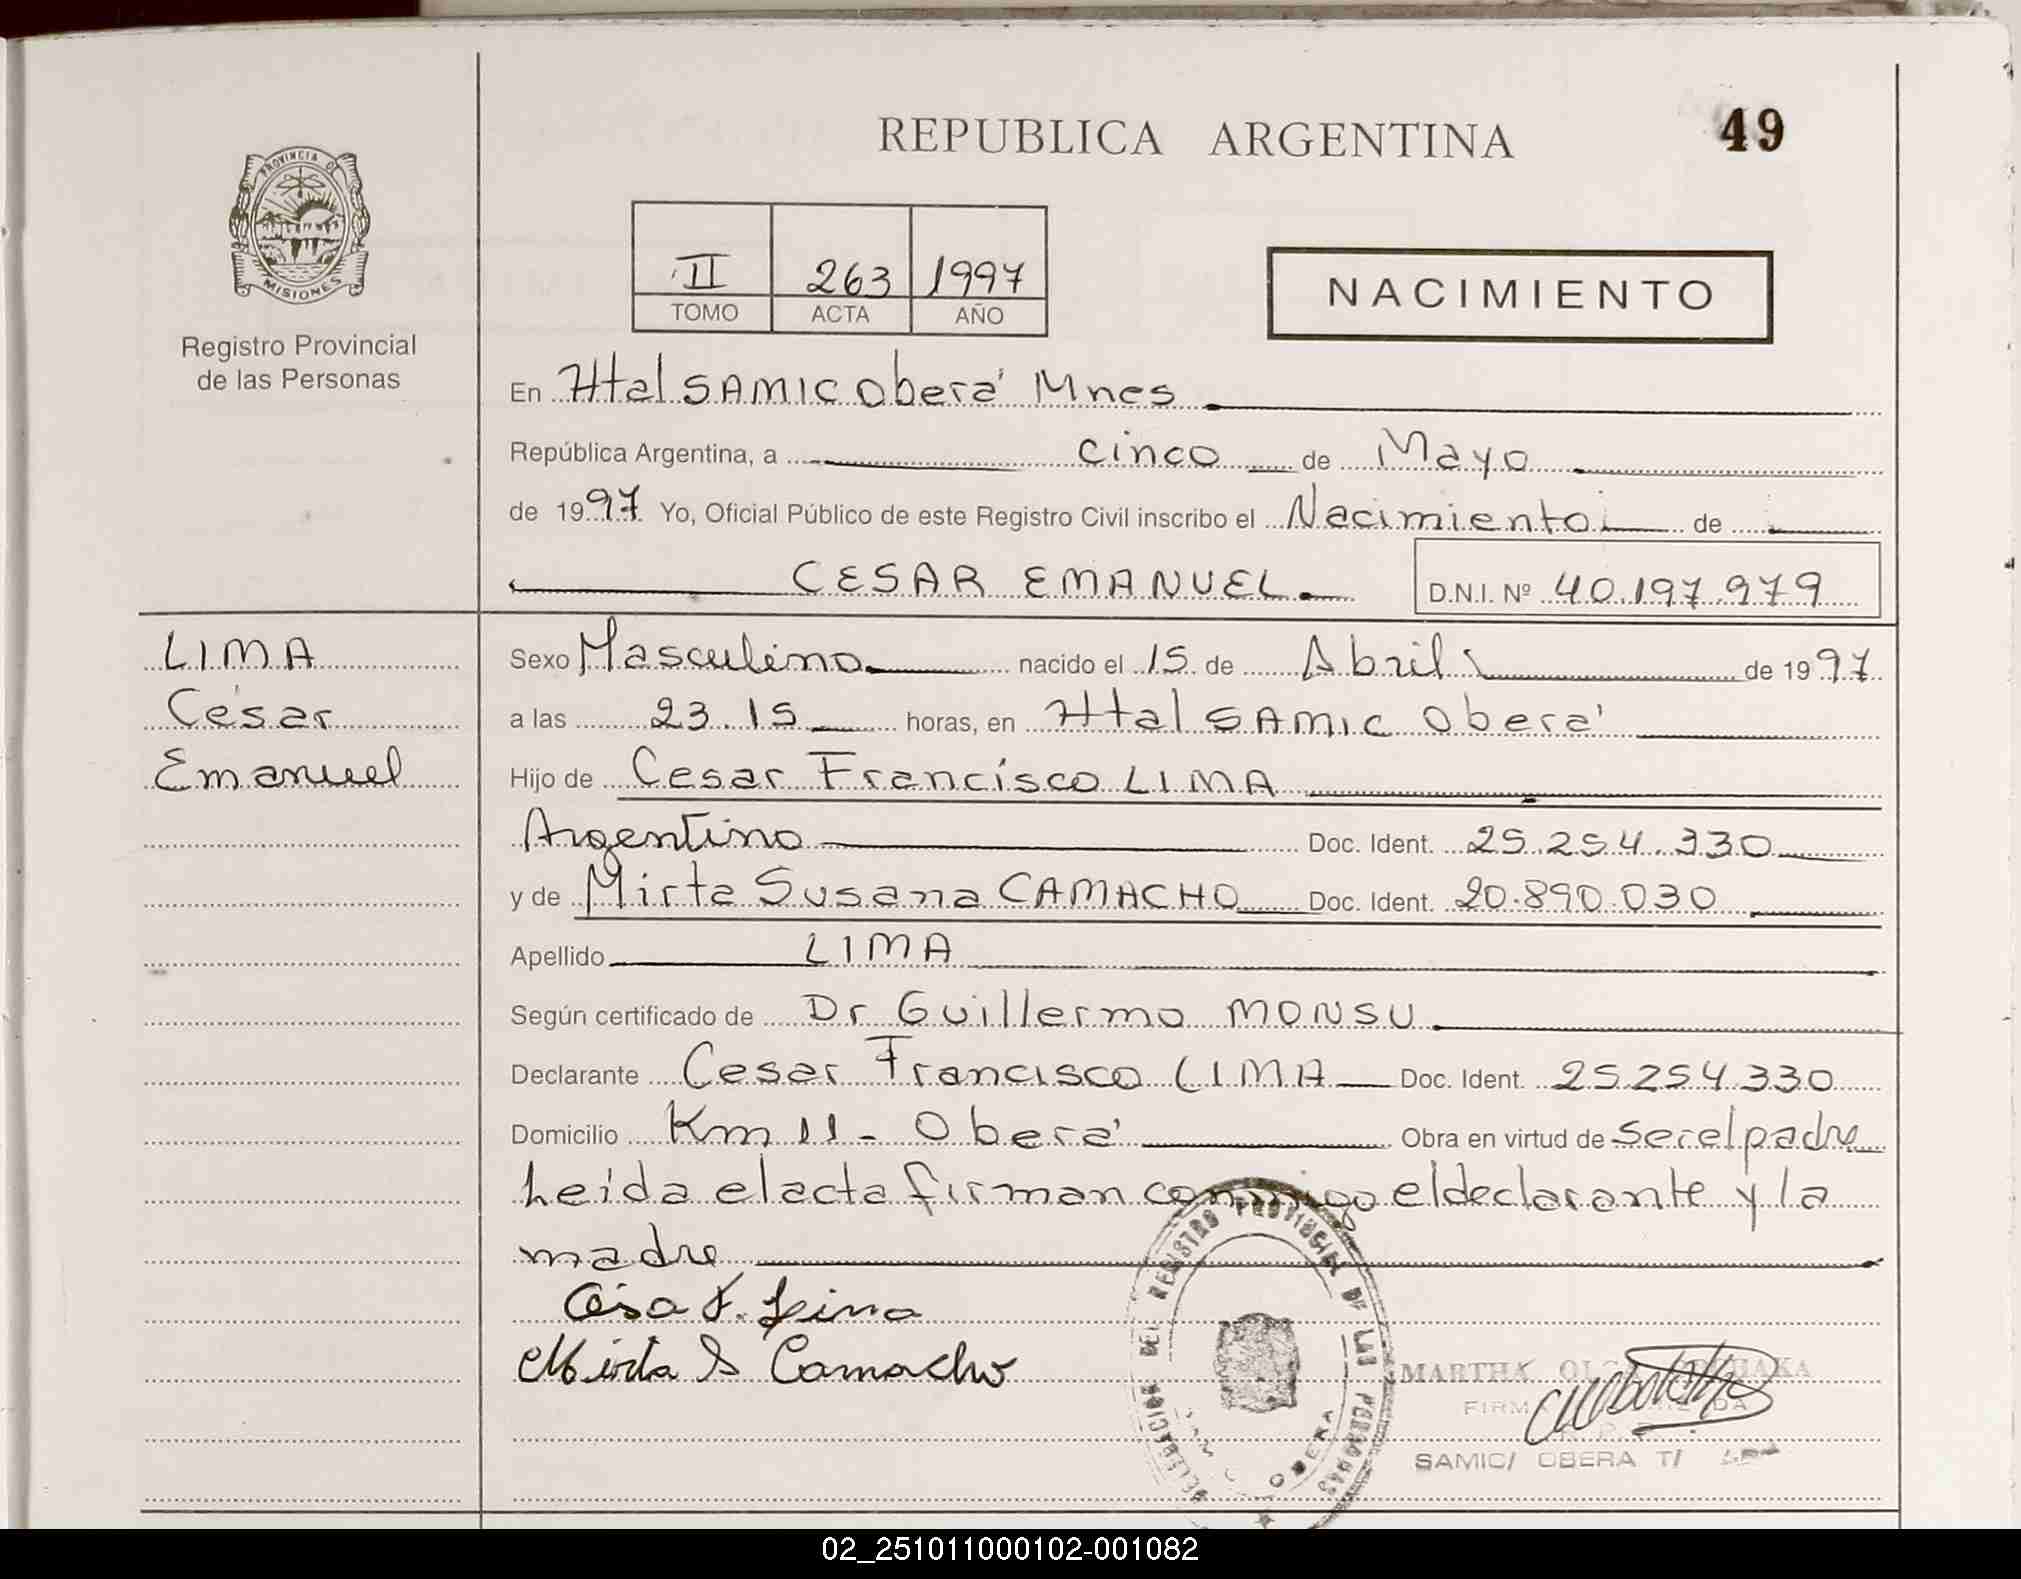 REPUBLICA ARGENTINA
49
PROVINCIA DE
MISIONES
Registro Provincial
de las Personas
II 263 1997
TOMO ACTA AÑO
NACIMIENTO
En Htal SAMIC Oberá Mnes
República Argentina, a cinco de Mayo
de 1997 Yo, Oficial Público de este Registro Civil inscribo el Nacimiento de
CESAR EMANUEL D.N.I. Nº 40.197.979
LIMA
César
Emanuel
Sexo Masculino nacido el 15 de Abril de 1997
a las 23.15 horas, en Htal SAMIC Oberá
Hijo de Cesar Francisco LIMA
Argentino Doc. Ident. 25.254.330
y de Mirta Susana CAMACHO Doc. Ident. 20.890.030
Apellido LIMA
Según certificado de Dr Guillermo MONSU
Declarante Cesar Francisco LIMA Doc. Ident. 25254330
Domicilio Km 11 - Oberá Obra en virtud de ser el padre
Leida el acta firman conmigo el declarante y la
madre
Cesa F. Lima
Mirta S Camacho
DELEGACION DEL REGISTRO PROVINCIAL DE LAS PERSONAS
OBERA
MARTHA
SAMIC/ OBERA
02_251011000102-001082